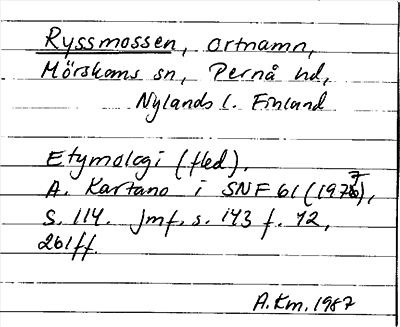 Ryssmossen, ortnamn,
Mörskoms sn, Pernå hd,
Nylands l. Finland
Etymologi (fled).
A. Kartano i SNF 61 (1977),
s. 114. Jmf. s. 143 f. 12,
261 ff.
A.Km. 1987